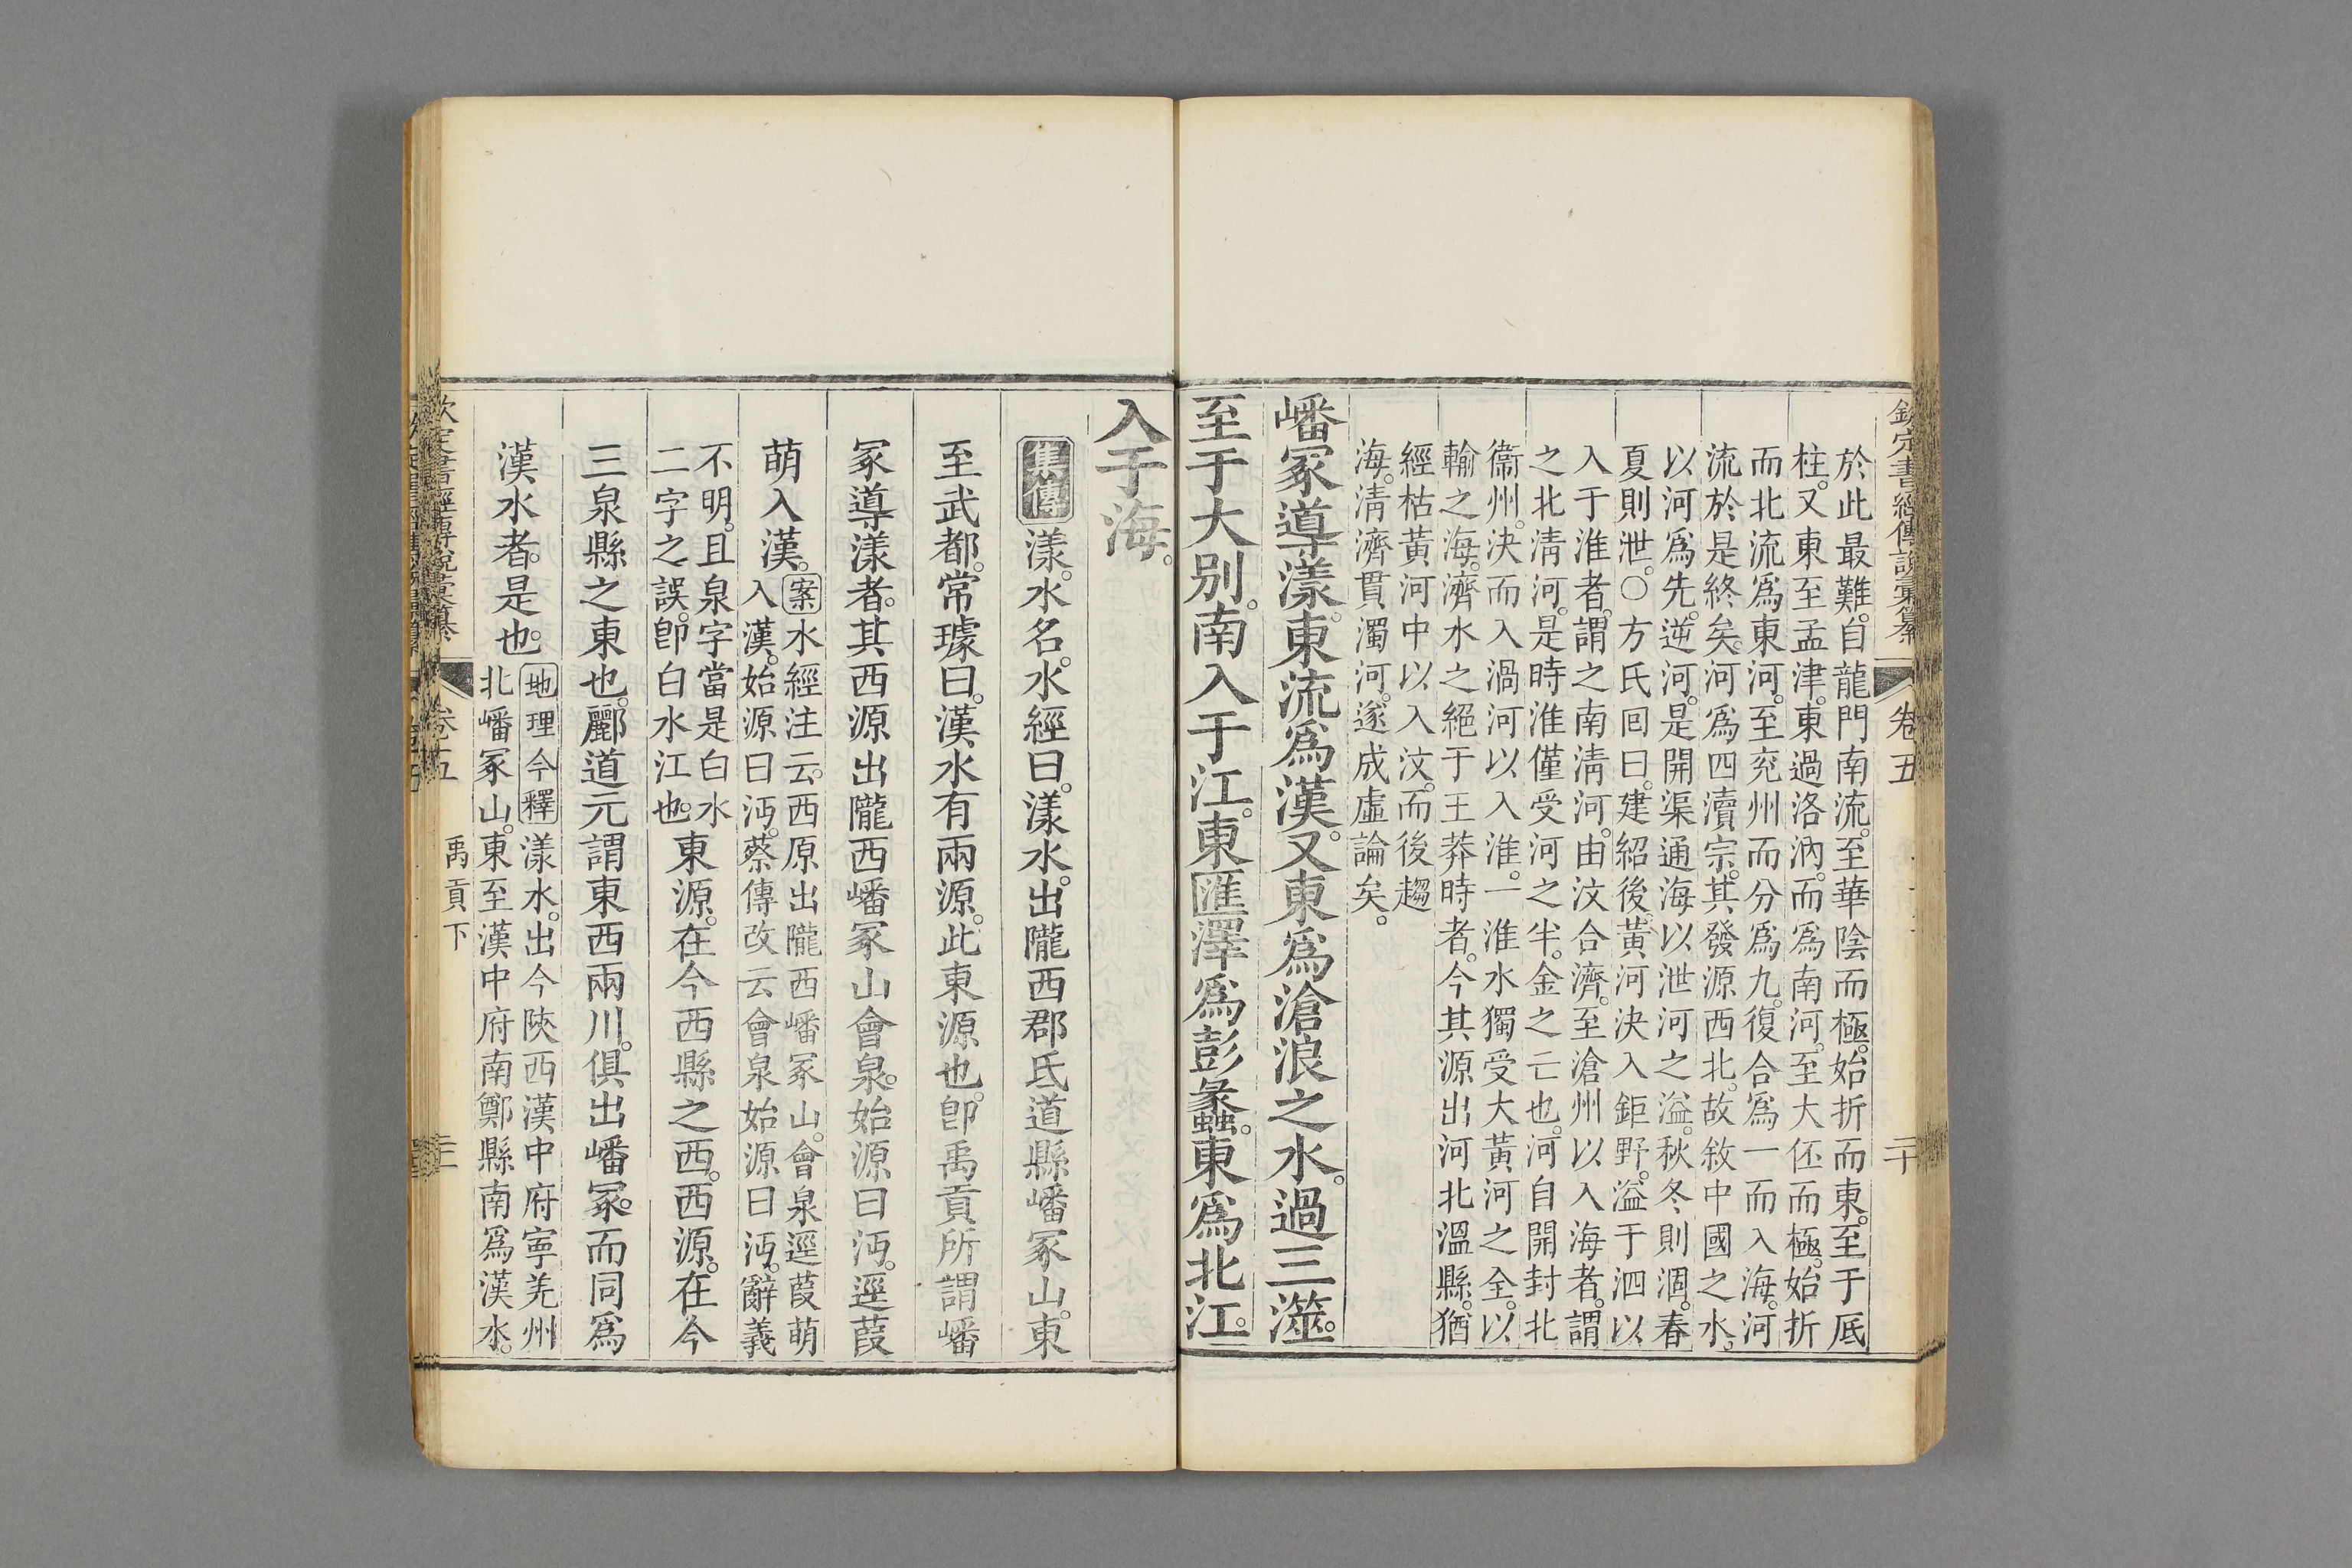 欽定書經傳說彙纂 卷五 二十
於此最難。自龍門南流。至華陰而極。始折而東。至于厎
柱。又東至孟津。東過洛汭。而爲南河。至大伾而極。始折
而北流爲東河。至兖州而分爲九。復合爲一而入海。河
流於是終矣。河爲四瀆宗。其發源西北。故敘中國之水。
以河爲先。逆河。是開渠通海以泄河之溢。秋冬則涸。春
夏則泄。○方氏回曰。建紹後。黃河決入鉅野。溢于泗以
入于淮者。謂之南淸河。由汶合濟。至滄州以入海者。謂
之北淸河。是時淮僅受河之半。金之亡也。河自開封北
衞州。決而入渦河以入淮。一淮水獨受大黃河之全。以
輸之海。濟水之絕于王莽時者。今其源出河北溫縣。猶
經枯黃河中以入汶。而後趨
海。淸濟貫濁河。遂成虛論矣。
嶓冢導漾。東流爲漢。又東爲滄浪之水。過三澨。
至于大别。南入于江。東匯澤爲彭蠡。東爲北江。
入于海。
集傳 漾。水名。水經曰。漾水。出隴西郡氐道縣嶓冢山。東
至武都。常璩曰。漢水有兩源。此東源也。卽禹貢所謂嶓
冢導漾者。其西源出隴西嶓冢山會泉。始源曰沔。逕葭
萌入漢。
案 水經注云。西原出隴西嶓冢山。會泉逕葭萌
入漢。始源曰沔。蔡傳改云會泉始源曰沔。辭義
不明。且泉字當是白水
二字之誤。卽白水江也。
東源。在今西縣之西。西源。在今
三泉縣之東也。酈道元謂東西兩川。俱出嶓冢。而同爲
漢水者。是也。
地理今釋 漾水。出今陝西漢中府寧羌州
北嶓冢山。東至漢中府南鄭縣南爲漢水。
欽定書經傳說彙纂 卷五 禹貢下